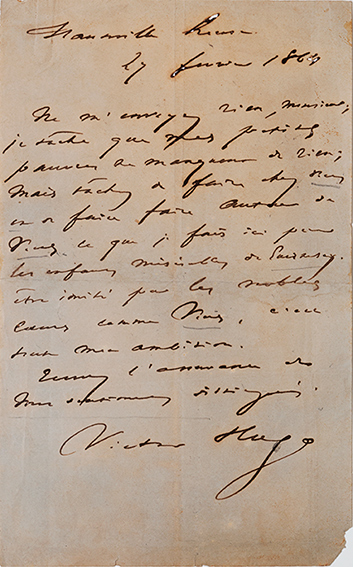 Hauteville House
27 février 186
Ne m'envoyez rien, monsieur,
je tâche que mes petits
pauvres ne manquent de rien;
mais tâchez de faire chez vous
et de faire faire autour de
Vous ce que je fais ici pour
les enfants misérables de Guernesey.
être imité par les nobles
cœurs comme Vous, c'est
toute mon ambition.
Recevez l'assurance de
mes sentiments distingués.
Victor Hugo